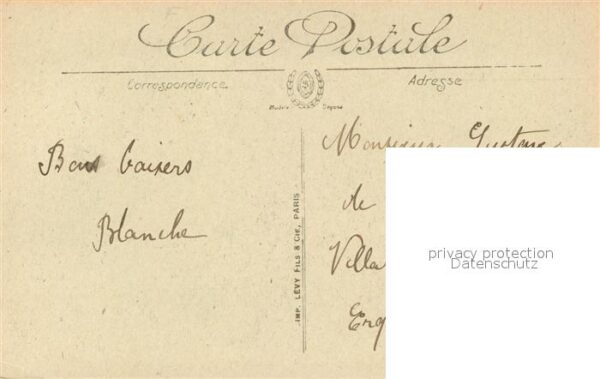 Carte Postale
Correspondance
Adresse
Modèle Déposé
Bons baisers
Blanche
IMP. LÉVY FILS & CIE, PARIS
Monsieur
de
Villa
privacy protection
Datenschutz